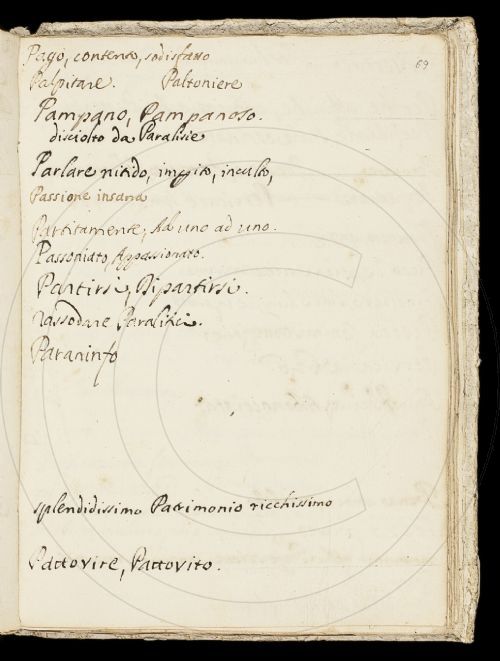 89
Pago, contento, sodisfatto
Palpitare. Paltoniere
Pampano, Pampanoso.
disciolto da Paralisie
Parlare nitido, incolto,
Passione insana
Partitamente, Ad uno ad uno.
Passoniato, Appassionato.
Partirsi, Dipartirsi.
rassodare Paralitici.
Paraninfo
splendidissimo Patrimonio ricchissimo
Pattovire, Pattovito.